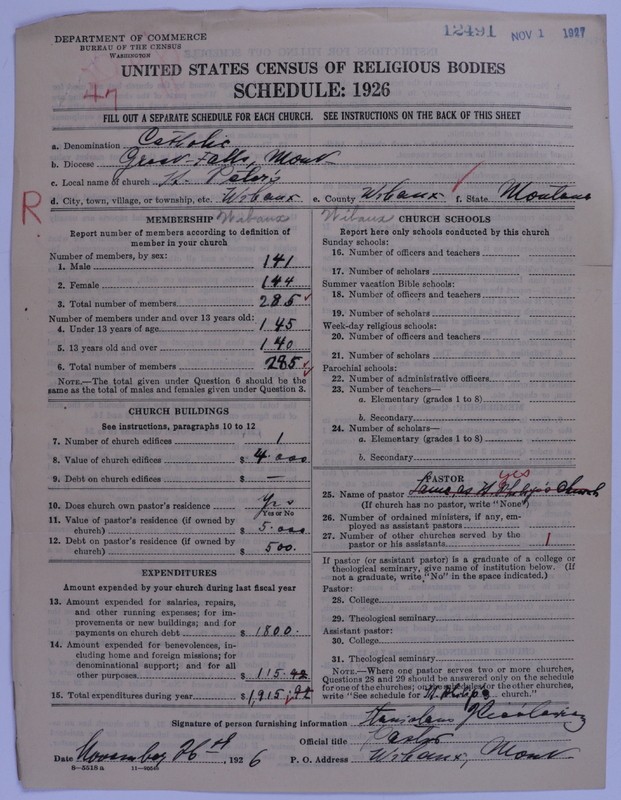 12491 NOV 1 1927
DEPARTMENT OF COMMERCE
BUREAU OF THE CENSUS
WASHINGTON
UNITED STATES CENSUS OF RELIGIOUS BODIES
SCHEDULE: 1926
47
FILL OUT A SEPARATE SCHEDULE FOR EACH CHURCH. SEE INSTRUCTIONS ON THE BACK OF THIS SHEET
a. Denomination Catholic
b. Diocese Great Falls, Mont
c. Local name of church St. Peter's
d. City, town, village, or township, etc. Wibaux e. County Wibaux f. State Montana
R
MEMBERSHIP Wibaux
Report number of members according to definition of
member in your church
Number of members, by sex:
1. Male 141
2. Female 144
3. Total number of members 285
Number of members under and over 13 years old:
4. Under 13 years of age 145
5. 13 years old and over 140
6. Total number of members 285
NOTE.—The total given under Question 6 should be the
same as the total of males and females given under Question 3.
CHURCH BUILDINGS
See instructions, paragraphs 10 to 12
7. Number of church edifices 1
8. Value of church edifices $ 4.000
9. Debt on church edifices $ —
10. Does church own pastor's residence yes
Yes or No
11. Value of pastor's residence (if owned by
church) $ 5.000
12. Debt on pastor's residence (if owned by
church) $ 500.
EXPENDITURES
Amount expended by your church during last fiscal year
13. Amount expended for salaries, repairs,
and other running expenses; for im-
provements or new buildings; and for
payments on church debt $ 1800.
14. Amount expended for benevolences, in-
cluding home and foreign missions; for
denominational support; and for all
other purposes $ 115.22
15. Total expenditures during year $ 1,915.22
Wibaux CHURCH SCHOOLS
Report here only schools conducted by this church
Sunday schools:
16. Number of officers and teachers
17. Number of scholars
Summer vacation Bible schools:
18. Number of officers and teachers
19. Number of scholars
Week-day religious schools:
20. Number of officers and teachers
21. Number of scholars
Parochial schools:
22. Number of administrative officers
23. Number of teachers—
a. Elementary (grades 1 to 8)
b. Secondary
24. Number of scholars—
a. Elementary (grades 1 to 8)
b. Secondary
PASTOR yes
25. Name of pastor Same as St. Philip's Church
(If church has no pastor, write "None")
26. Number of ordained ministers, if any, em-
ployed as assistant pastors
27. Number of other churches served by the
pastor or his assistants 1
If pastor (or assistant pastor) is a graduate of a college or
theological seminary, give name of institution below. (If
not a graduate, write "No" in the space indicated.)
Pastor:
28. College
29. Theological seminary
Assistant pastor:
30. College
31. Theological seminary
NOTE.—Where one pastor serves two or more churches,
Questions 28 and 29 should be answered only on the schedule
for one of the churches; on the schedules for the other churches,
write "See schedule for St. Philip's church."
Signature of person furnishing information Stanislaus
Official title Pastor
Date November 26th, 1926 P. O. Address Wibaux, Mont
8—5518 a